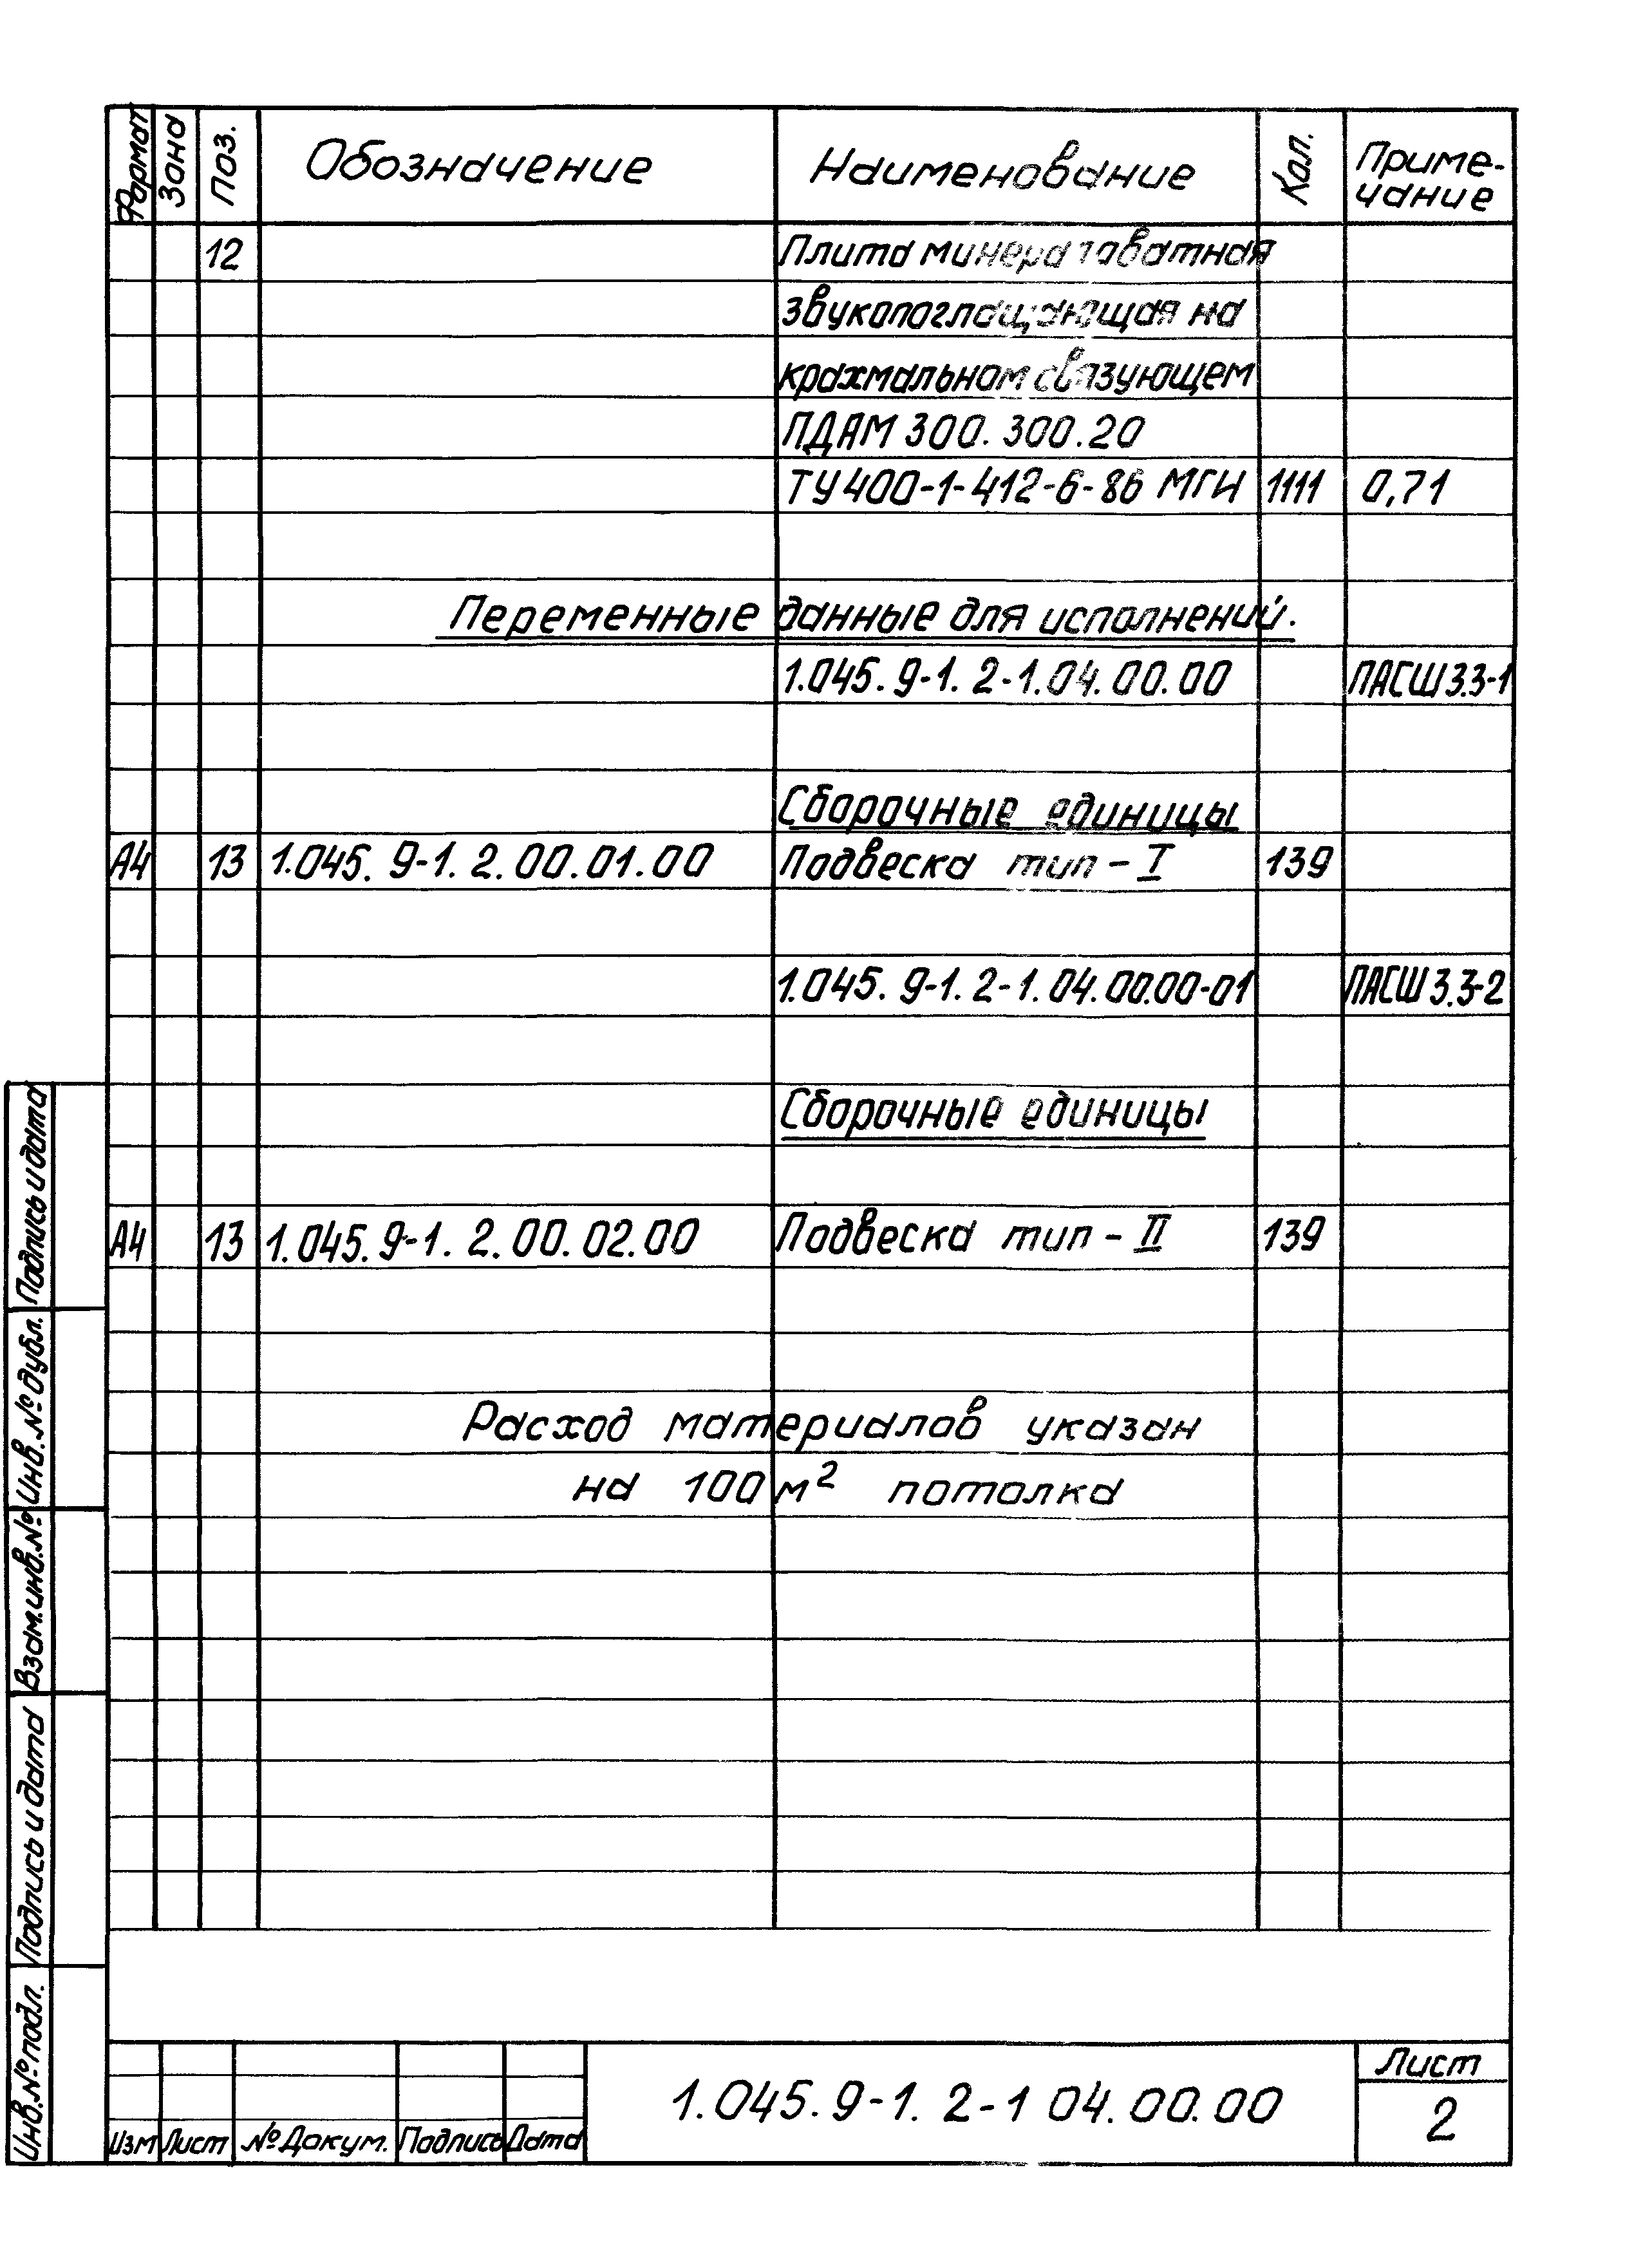 Формат Зона Поз. Обозначение Наименование Кол. Приме-
чание
12 Плита минераловатная
звукопоглащающая на
крахмальном связующем
ПДАМ 300.300.20
ТУ 400-1-412-6-86 МГИ 1111 0,71
Переменные данные для исполнений.
1.045.9-1.2-1.04.00.00 ПАСШ 3.3-1
Сборочные единицы
А4 13 1.045.9-1.2.00.01.00 Подвеска тип - I 139
1.045.9-1.2-1.04.00.00-01 ПАСШ 3.3-2
Сборочные единицы
А4 13 1.045.9-1.2.00.02.00 Подвеска тип - II 139
Расход материалов указан
на 100 м² потолка
Подпись и дата
Инв.№ дубл.
Взам.инв.№
Подпись и дата
Инв.№ подл.
Изм Лист № Докум. Подпись Дата
1.045.9-1.2-1 04.00.00
Лист
2